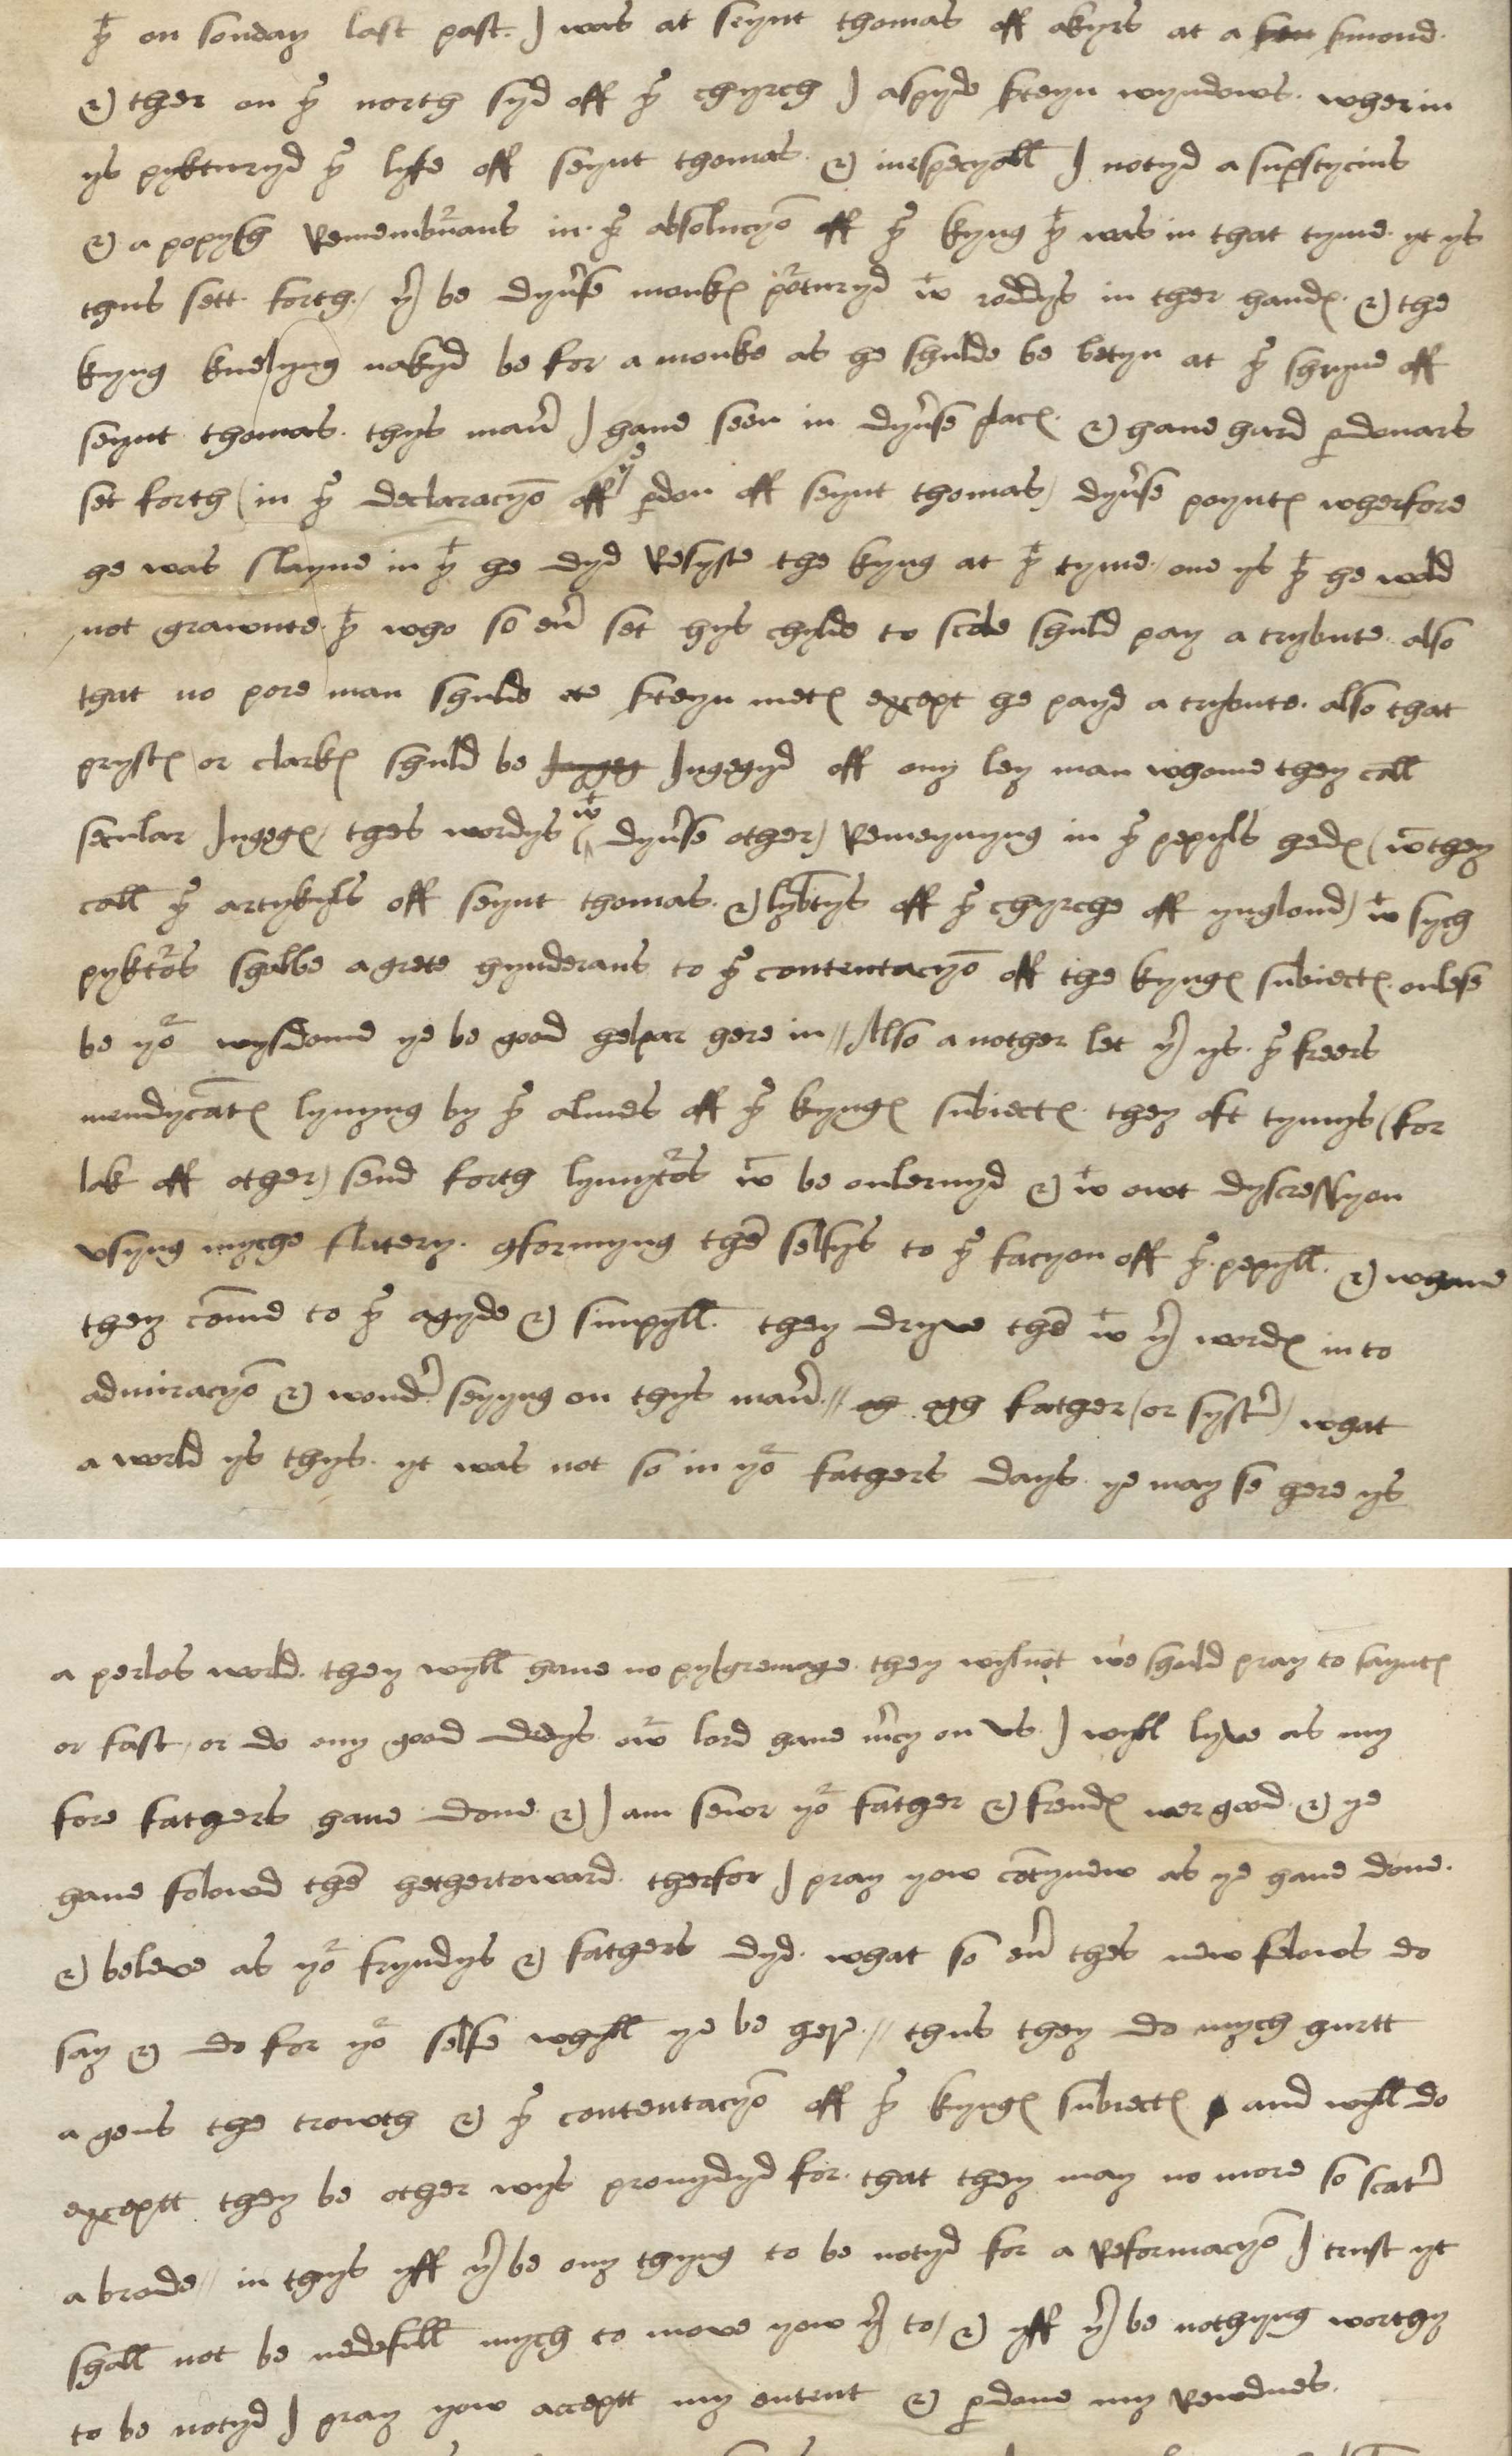 yt on sonday last past. J was at seynt thomas off akyrs at a sermond.
& ther on ye north syd off ye chyrch J aspyde sserteyn wyndows. wherin
ys pykturyd ye lyfe off seynt thomas. & inespecyall J notyd a suprstycius
& a popysh Remembrans in. ye absolucyō off ye kyng yt was in that tyme. yt ys
thus sett forth / yr be dyurse monkes portturyd wt roddys in ther handes. & the
kyng knelyng nakyd be for a monke as he shulde be betyn at ye shryne off
seynt thomas. thys manr J haue seen in dyurse places. & haue hard pdonars
set forth (in ye declaracyō off ye pdon off seynt thomas) dyurse poyntes wherfore
he was slayne in yt he dyd Resyste the kyng at yt tyme. one ys yt he wold
not grawnte. yt who so eur set hys chylde to scole shuld pay a trybute. also
that no pore man shulde ete certeyn metes except he payd a trybute. also that
prystes or clarkes shuld be Jugeg Jugegyd off ony ley man whome they call
secular Jugeges / thes wordys (wt dyurse other) Remeynyng in ye pepyls hedes (wch they
call ye artykyls off seynt thomas. & lybrtys off ye chyrche off ynglond) wt sych
pykturs shalbe a grete hynderans to ye contentacyō off the kynges subiectes. onlese
be yor wysdome ye be good helpar here in // Also a nother let yr ys. ye freers
mendycātes lyuyng by ye almes off ye kynges subiectes. they oft tymys (for
lak off other) send forth lymytors wch be onlernyd & wt owt dyscressyon
vsyng myche flatery. conformyng thē selfys to ye facyon off ye pepyll. & whane
they cōme to ye agyde & simpyll. they dryve thē wt yr wordes in to
admiracyō & wondr seyyng on thys manr. // oh ogh father (or systr) what
a world ys thys. yt was not so in yor fathers days. ye may se here ys
a perlos world. they wyll haue no pylgremage. they wyl not we shuld pray to sayntes
or fast, or do ony good dedys. owr lord haue mrcy on vs. J wyll lyve as my
fore fathers haue done. & J am sewr yor father & frendes wer good. & ye
haue folowd thē hethertoward. therfor J pray yow cōtynew as ye haue done.
& beleve as yor fryndys & fathers dyd. what so eur thes new felows do
say & do for yor selfe whyll ye be here. // thus they do mych hurtt
a gens the trowth & ye contentacyō off ye kynges subiectes and wyll do
exceptt they be other wys prouydyd for. that they may no more so scatr
a brode // in thys yff yr be ony thyng to be notyd for a Reformacyō J trust yt
shall not be nedefull mych to move yow yr to / & yff yr be nothyng worthy
to be notyd J pray yow acceptt my entent & pdone my Rewdnes.